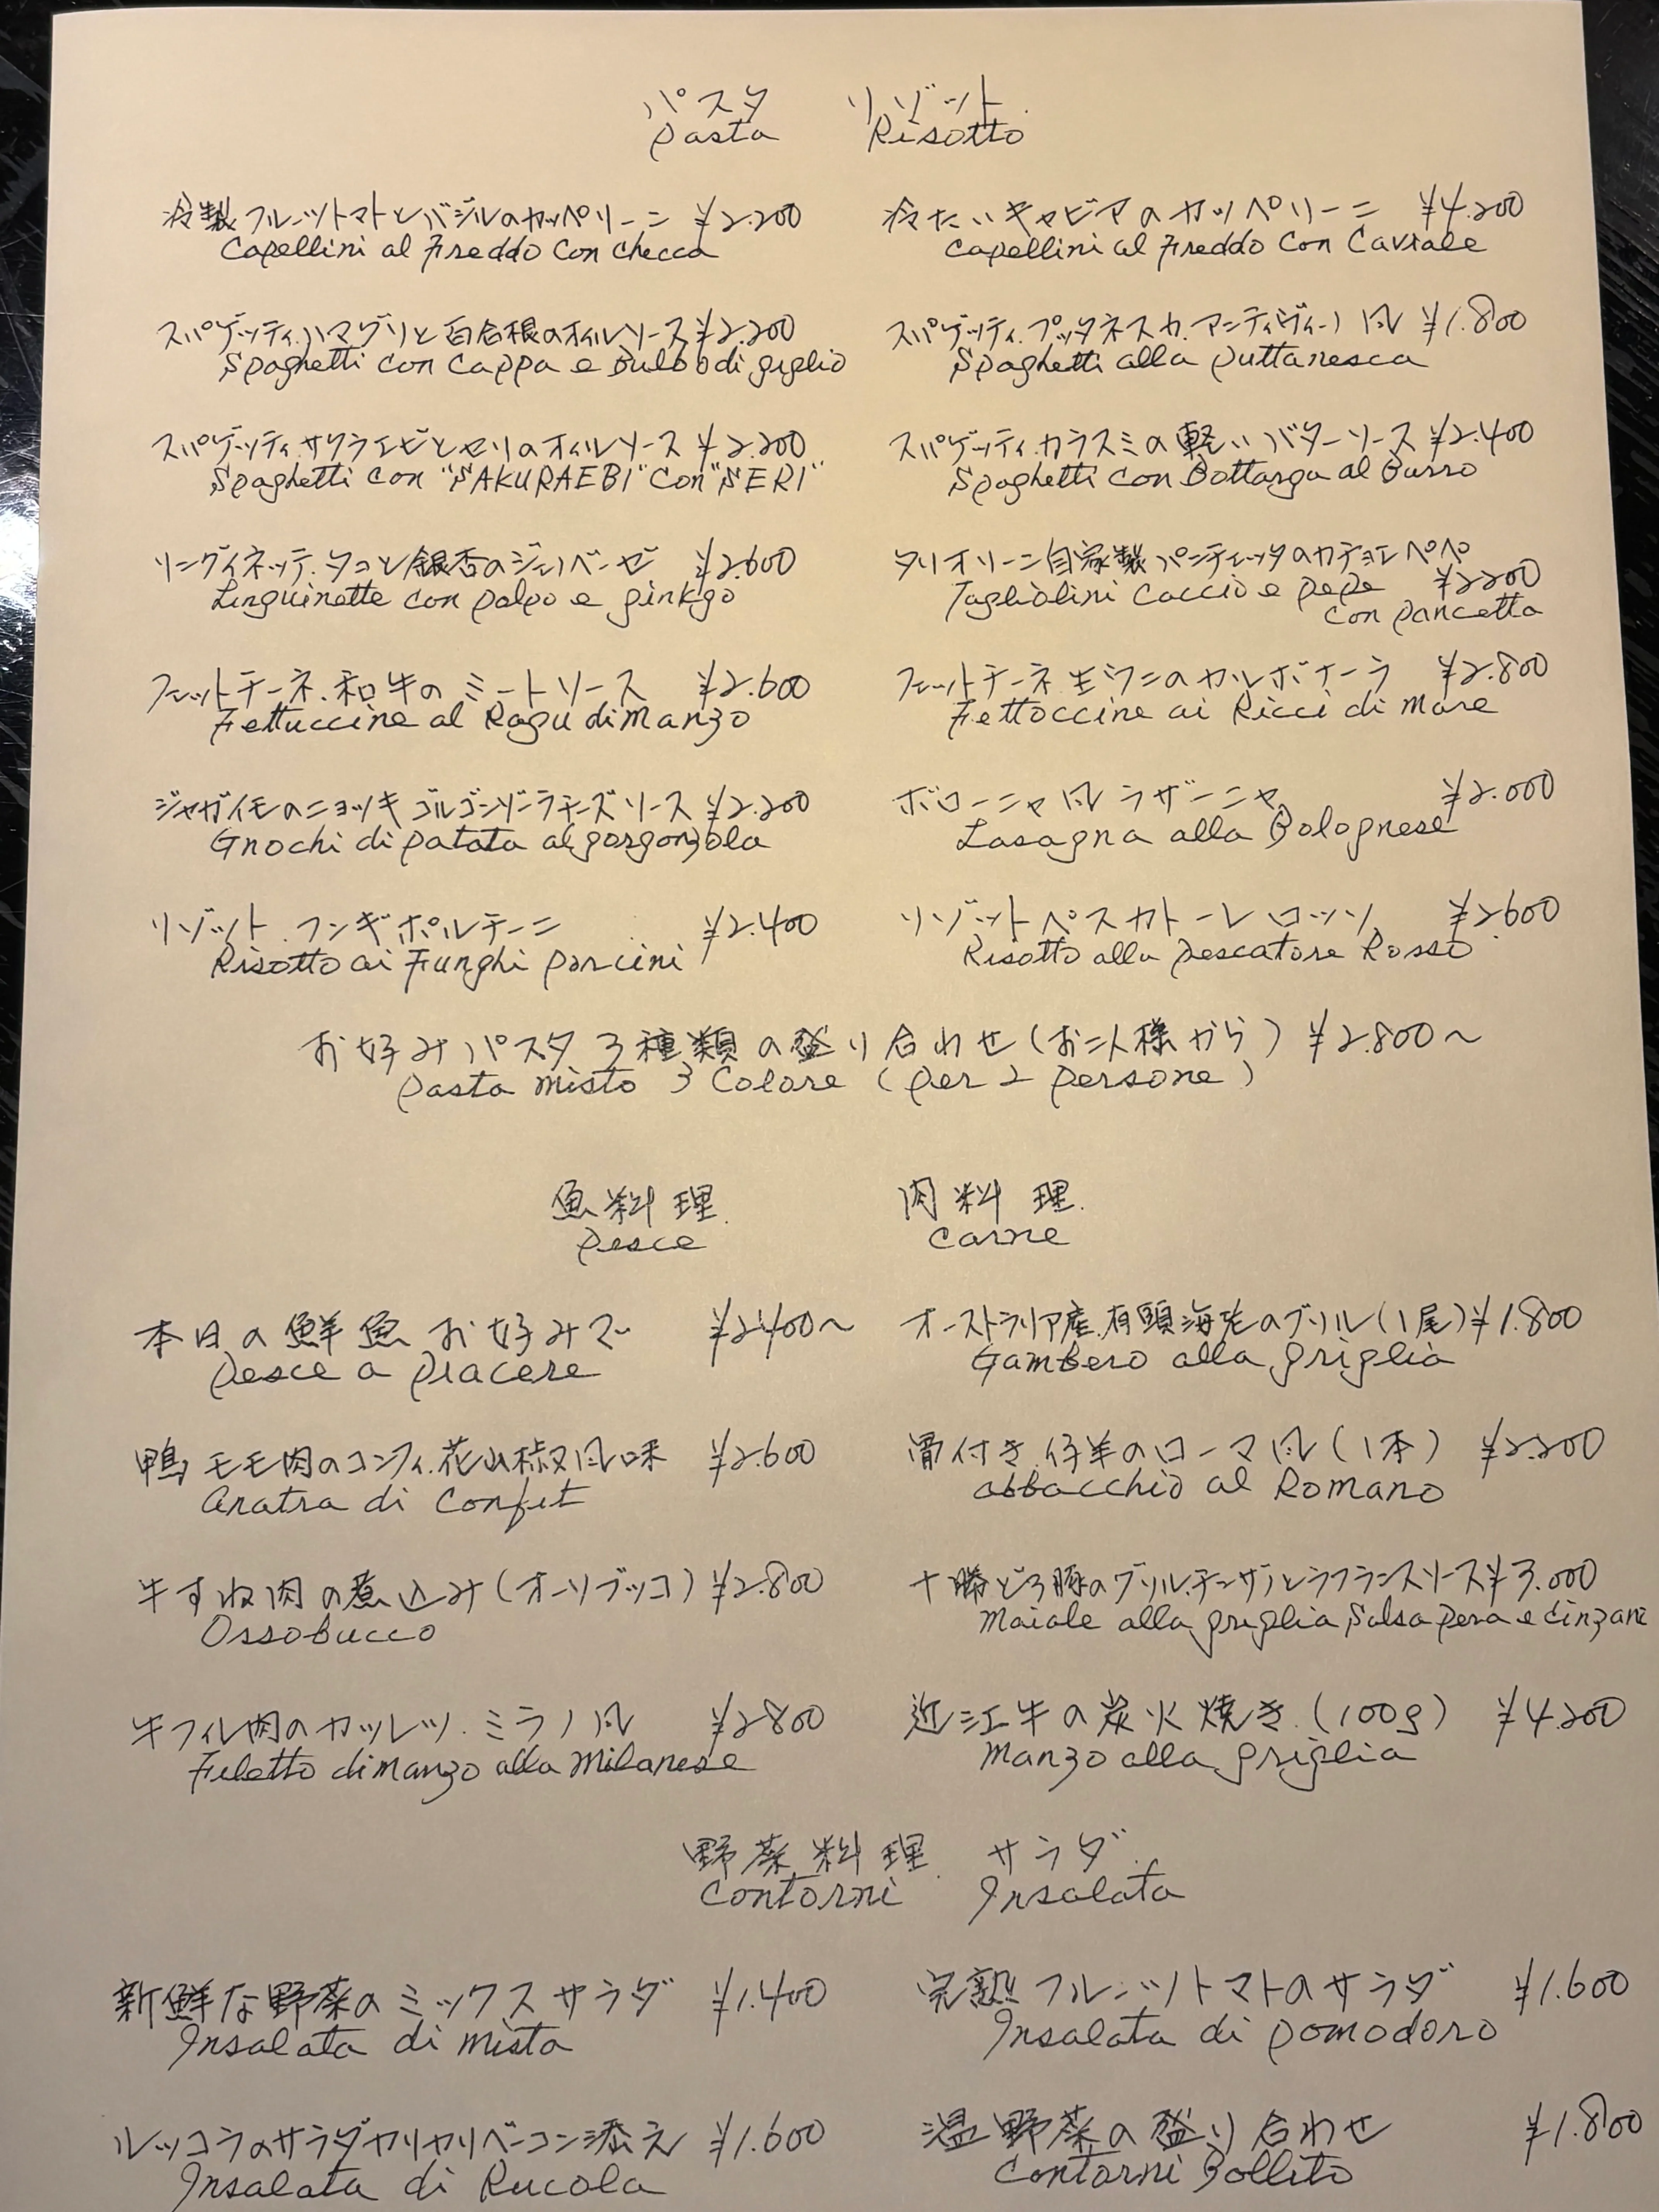 パスタ リゾット
Pasta Risotto
冷製フルーツトマトとバジルのカッペリーニ ¥2.200
Capellini al Freddo Con checca
冷たいキャビアのカッペリーニ ¥4.200
Capellini al Freddo Con Caviale
スパゲッティ.ハマグリと百合根のオイルソース ¥2.200
Spaghetti con Cappa e Bulbo di giglio
スパゲッティ.プッタネスカ.アンティヴィーノ風 ¥1.800
Spaghetti alla puttanesca
スパゲッティ.サクラエビとセリのオイルソース ¥2.200
Spaghetti con "SAKURAEBI" Con "SERI"
スパゲッティ.カラスミの軽いバターソース ¥2.400
Spaghetti con Bottarga al Burro
リングイネッテ.タコと銀杏のジェノベーゼ ¥2.600
Linguinette con polpo e ginkgo
タリオリーニ自家製パンチェッタのカチョエペペ
Tagliolini Caccio e pepe ¥2200
con pancetta
フェットチーネ.和牛のミートソース ¥2.600
Fettuccine al Ragu di manzo
フェットチーネ.生ウニのカルボナーラ ¥2.800
Fettoccine ai Ricci di mare
ジャガイモのニョッキ ゴルゴンゾーラチーズソース ¥2.200
Gnochi di patata al gorgonzola
ボローニャ風ラザーニャ ¥2.000
Lasagna alla Bolognese
リゾット.フンギポルチーニ ¥2.400
Risotto ai Funghi porcini
リゾットペスカトーレロッソ ¥2600
Risotto alla pescatore Rosso
お好みパスタ3種類の盛り合わせ(お二人様から) ¥2.800〜
pasta misto 3 Colore (per 2 persone)
魚料理. 肉料理.
pesce Carne
本日の鮮魚お好みで ¥2400〜
pesce a piacere
オーストラリア産.有頭海老のグリル(1尾) ¥1.800
Gambero alla griglia
鴨モモ肉のコンフィ.花山椒風味 ¥2.600
Anatra di Confit
骨付き仔羊のローマ風(1本) ¥2.200
abbacchio al Romano
牛すね肉の煮込み(オーソブッコ) ¥2.800
Ossobucco
十勝どろ豚のグリル.チンザノとラフランスソース ¥3.000
Maiale alla griglia Salsa pera e Cinzani
牛フィレ肉のカツレツ.ミラノ風 ¥2800
Filetto di manzo alla milanese
近江牛の炭火焼き.(100g) ¥4.200
manzo alla griglia
野菜料理. サラダ.
Contorni Insalata
新鮮な野菜のミックスサラダ ¥1.400
Insalata di mista
完熟フルーツトマトのサラダ ¥1.600
Insalata di pomodoro
ルッコラのサラダカリカリベーコン添え ¥1.600
Insalata di Rucola
温野菜の盛り合わせ ¥1.800
Contorni Bollito